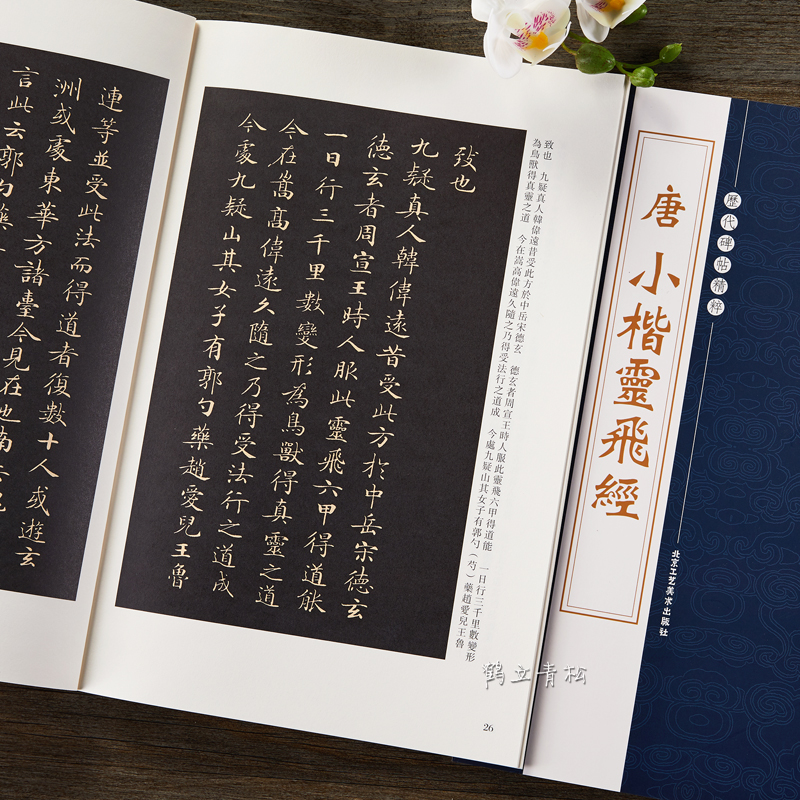 歷代碑帖精粹
唐 小楷靈飛經
北京工艺美术出版社
致也 九疑真人韓偉遠昔受此方於中岳宋德玄 德玄者周宣王時人服此靈飛六甲得道能 一日行三千里數變形
為鳥獸得真靈之道 今在嵩高偉遠久隨之乃得受法行之道成 今處九疑山其女子有郭勺（芍）藥趙愛兒王魯
致也
九疑真人韓偉遠昔受此方於中岳宋德玄
德玄者周宣王時人服此靈飛六甲得道能
一日行三千里數變形為鳥獸得真靈之道
今在嵩高偉遠久隨之乃得受法行之道成
今處九疑山其女子有郭勺藥趙愛兒王魯
26
連等並受此法而得道者復數十人或遊玄
洲或處東華方諸臺今見在也南
言此云郭勺藥
鹤立青松